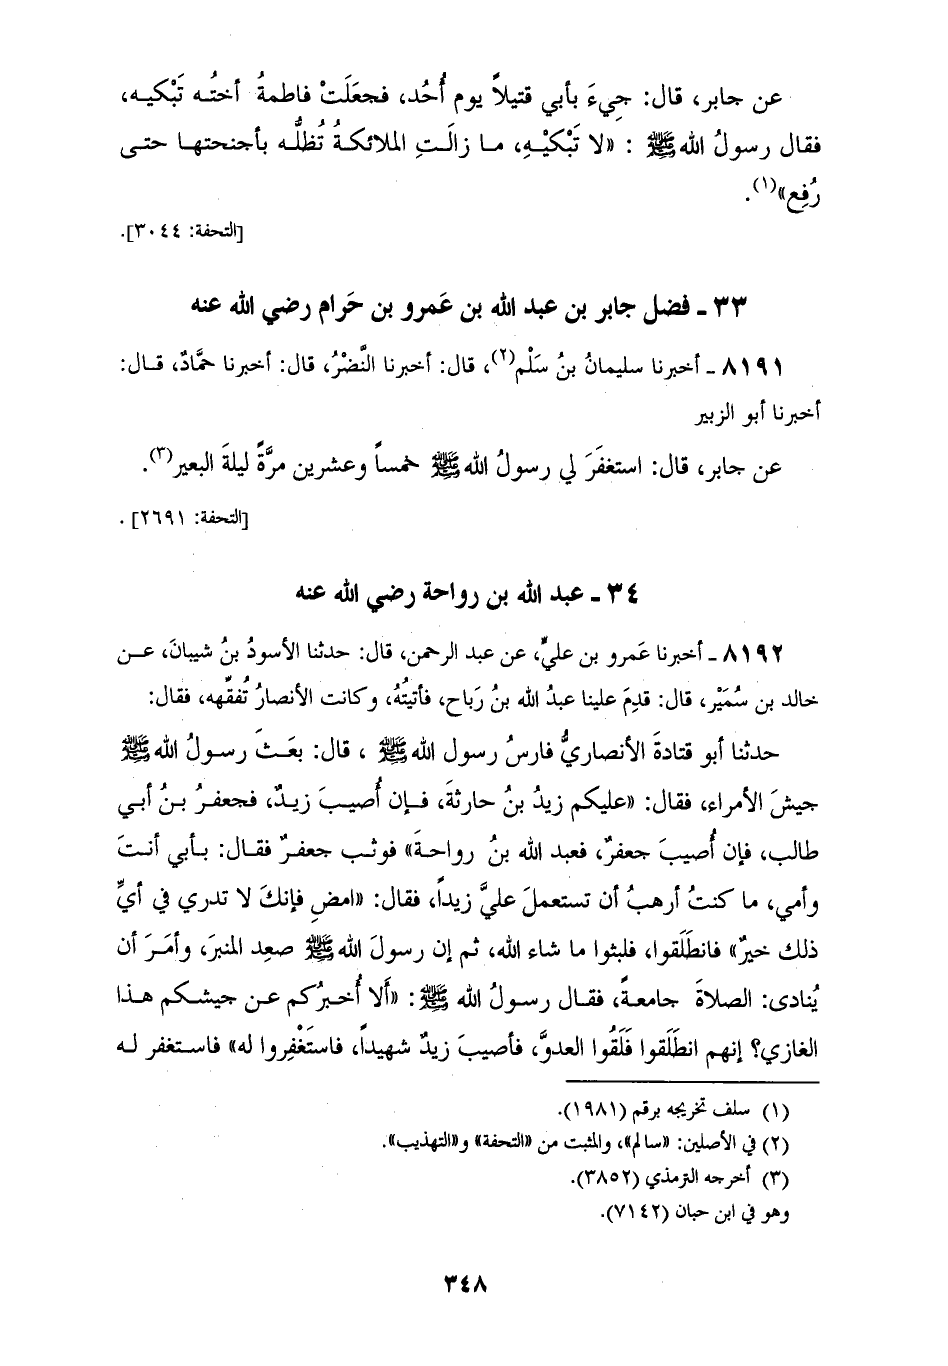 عن جابر، قال: جِيءَ بأبي قتيلاً يوم أُحُد، فجعَلَتْ فاطمةُ أختُه تَبْكيه،
فقال رسولُ الله ﷺ : «لا تَبْكيْهِ، ما زالَتِ الملائكةُ تُظلُّه بأجنحتها حتى
رُفِع»(١).
[التحفة: ٣٠٤٤].
٣٣ ـ فضل جابر بن عبد الله بن عَمرو بن حَرام رضي الله عنه
٨١٩١ ـ أخبرنا سليمانُ بنُ سَلْم(٢)، قال: أخبرنا النَّضْرُ، قال: أخبرنا حمَّادٌ، قال:
أخبرنا أبو الزبير
عن جابر، قال: استغفَرَ لي رسولُ الله ﷺ خمساً وعشرين مرَّةً ليلةَ البعير(٣).
[التحفة: ٢٦٩١] .
٣٤ ـ عبد الله بن رواحة رضي الله عنه
٨١٩٢ ـ أخبرنا عَمرو بن عليٍّ، عن عبد الرحمن، قال: حدثنا الأسودُ بنُ شيبانَ، عن
خالد بن سُمَيْر، قال: قدِمَ علينا عبدُ الله بنُ رَباح، فأتيتُهُ، وكانت الأنصارُ تُفقِّهه، فقال:
حدثنا أبو قتادةَ الأنصاريُّ فارسُ رسول الله ﷺ ، قال: بعَثَ رسولُ الله ﷺ
جيشَ الأمراء، فقال: «عليكم زيدُ بنُ حارثةَ، فإن أُصيبَ زيدٌ، فجعفرُ بنُ أبي
طالب، فإن أُصيبَ جعفرٌ، فعبد الله بنُ رواحةَ» فوثب جعفرٌ فقال: بأبي أنتَ
وأمي، ما كنتُ أرهبُ أن تستعملَ عليَّ زيداً، فقال: «امضِ فإنكَ لا تدري في أيِّ
ذلك خيرٌ» فانطَلَقوا، فلبثوا ما شاء الله، ثم إن رسولَ الله ﷺ صعِد المنبرَ، وأمَرَ أن
يُنادى: الصلاةَ جامعةً، فقال رسولُ الله ﷺ: «أَلا أُخبرُكم عن جيشكم هذا
الغازي؟ إنهم انطَلَقوا فَلَقُوا العدوَّ، فأصيبَ زيدٌ شهيداً، فاستَغْفِروا له» فاستغفر له
(١) سلف تخريجه برقم (١٩٨١).
(٢) في الأصلين: «سالم»، والمثبت من «التحفة» و«التهذيب».
(٣) أخرجه الترمذي (٣٨٥٢).
وهو في ابن حبان (٧١٤٢).
٣٤٨